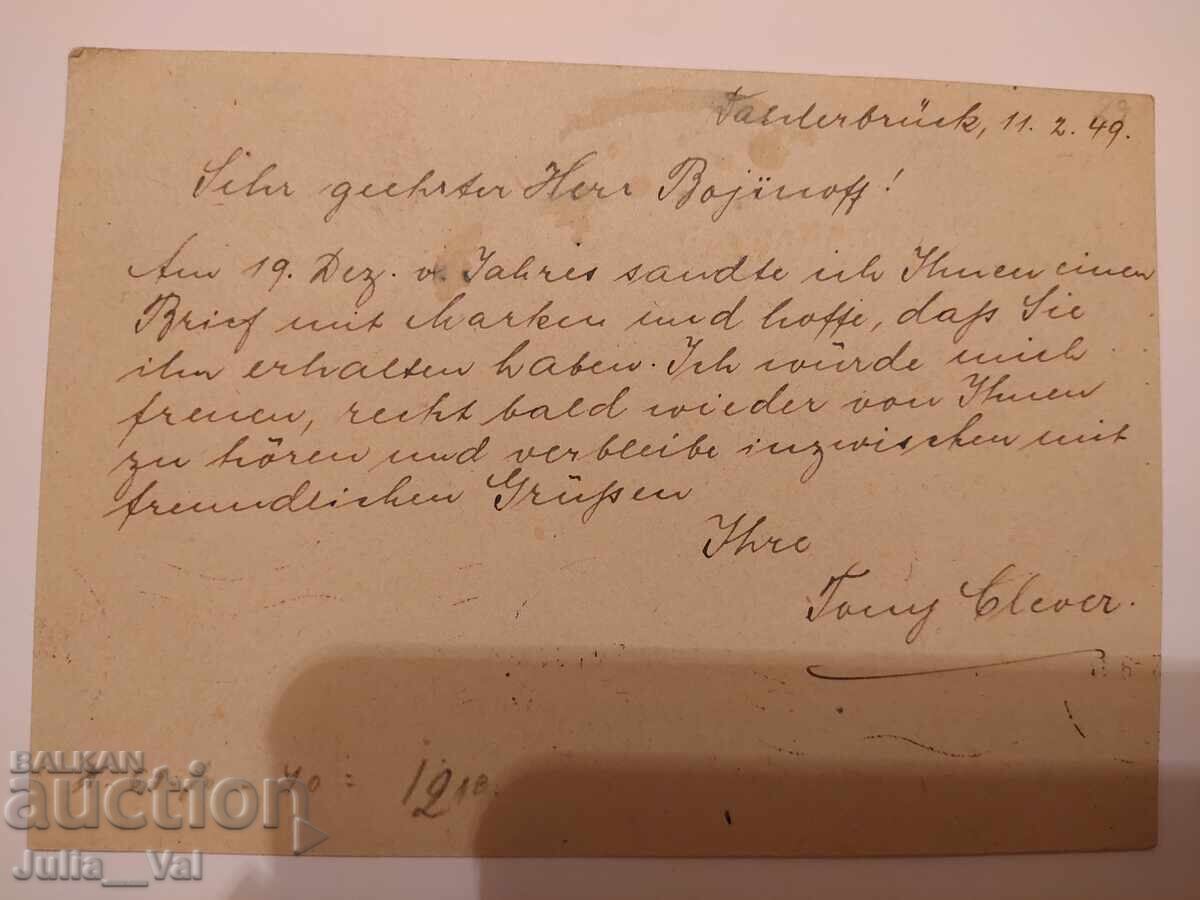 11. 2. 49.
Sehr geehrter Herr Bojinoff!
Am 19. Dez. v. Jahres sandte ich Ihnen einen
Brief mit Marken und hoffe, daß Sie
ihn erhalten haben. Ich würde mich
freuen, recht bald wieder von Ihnen
zu hören und verbleibe inzwischen mit
freundlichen Grüßen
Ihre
Tony Clever.
BALKAN
auction
Julia__Val